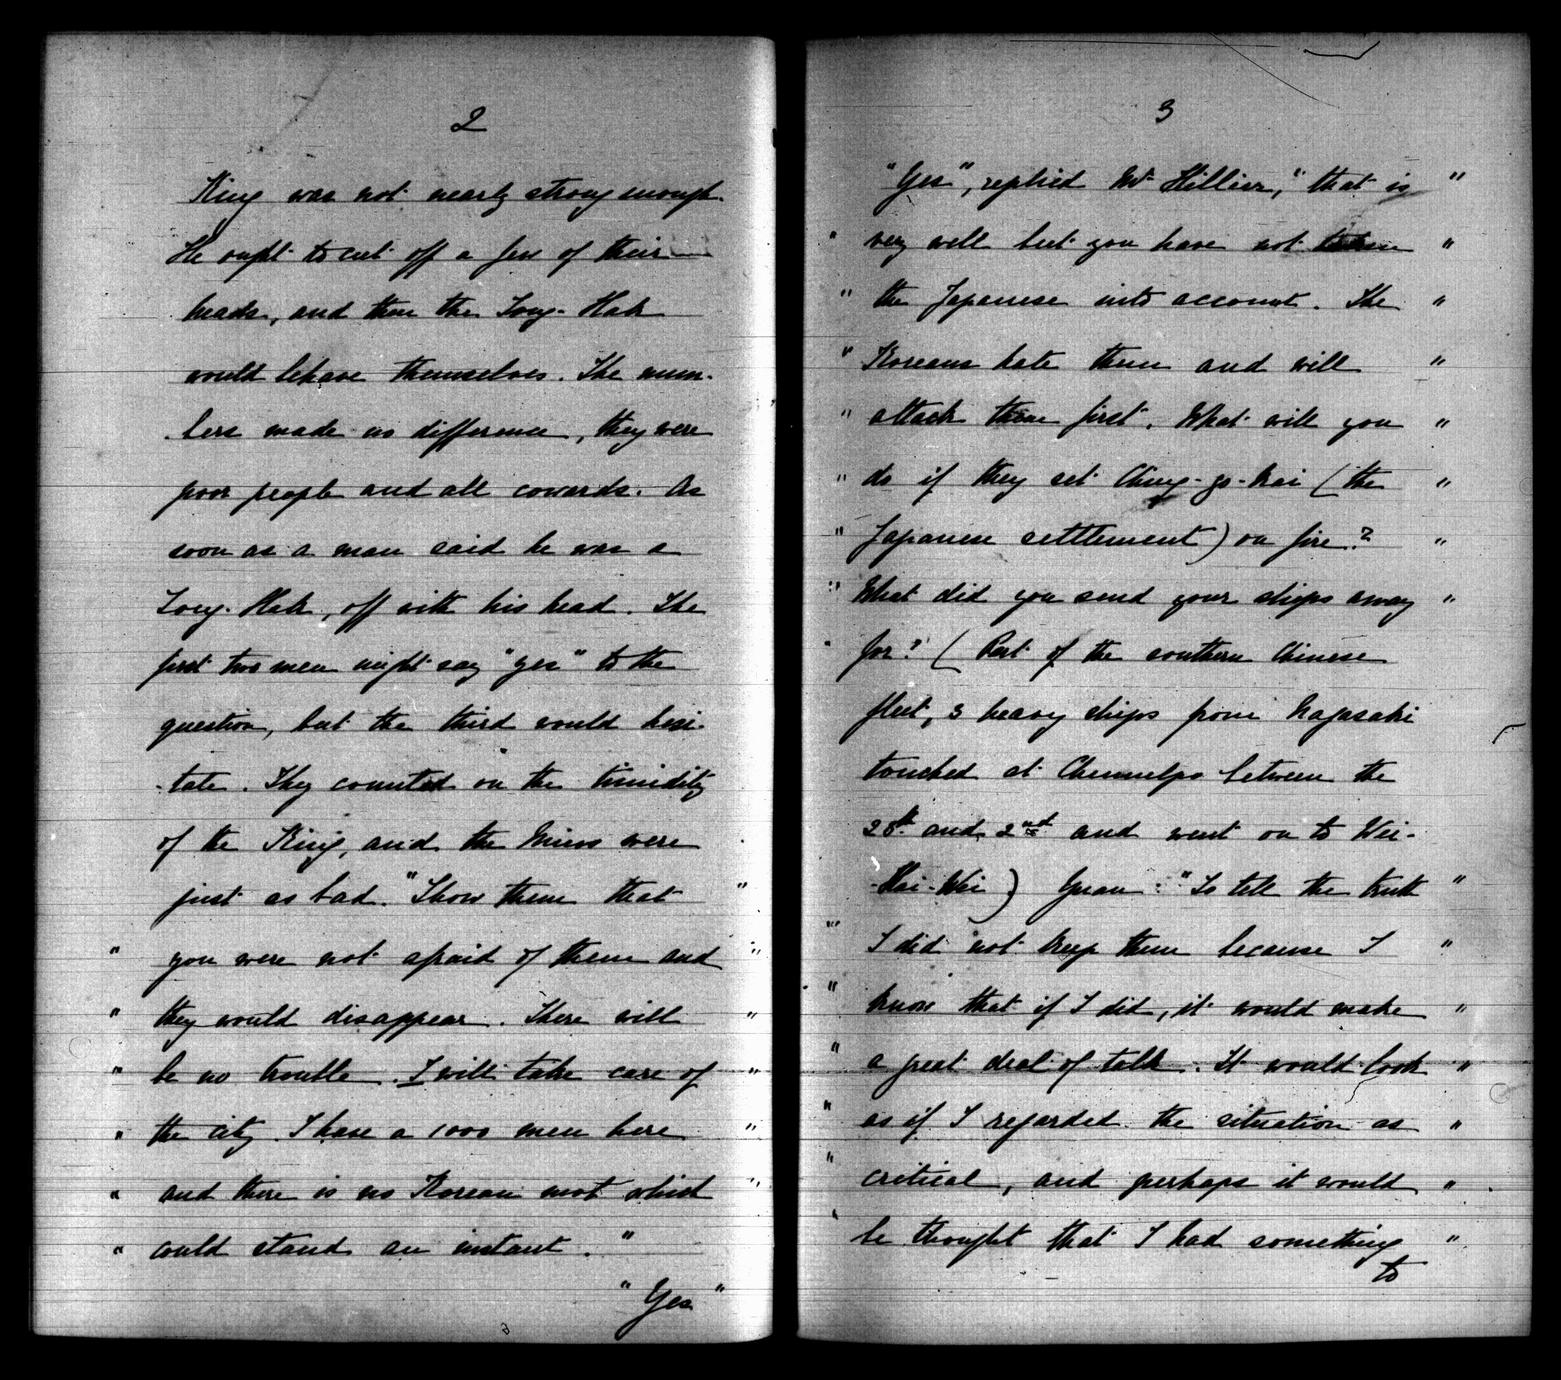 2
King was not nearly strong enough.
He ought to cut off a few of their
heads, and then the Tong-Hak
would behave themselves. The num-
bers made no difference, they were
poor people and all cowards. As
soon as a man said he was a
Tong-Hak, off with his head. The
first two men might say "yes" to the
question, but the third would hesi-
-tate. They counted on the timidity
of the King, and the Mins were
just as bad. "Show them that "
" you were not afraid of them and "
" they would disappear. There will "
" be no trouble. I will take care of "
" the city. I have a 1000 men here "
" and there is no Korean mob which "
" could stand an instant. "
"Yes"
3
"Yes", replied Mr Hillier, "that is "
" very well but you have not taken "
" the Japanese into account. The "
" Koreans hate them and will "
" attack them first. What will you "
" do if they set Ching-go-kai (the "
" Japanese settlement) on fire? "
" What did you send your ships away "
" for? (Part of the southern Chinese
fleet, 3 heavy ships from Nagasaki
touched at Chemulpo between the
28th and 2nd and went on to Wei-
-Hai-Wei) Yuan: "To tell the truth "
" I did not keep them because I "
" knew that if I did, it would make "
" a great deal of talk. It would look "
" as if I regarded the situation as "
" critical, and perhaps it would "
" be thought that I had something "
to